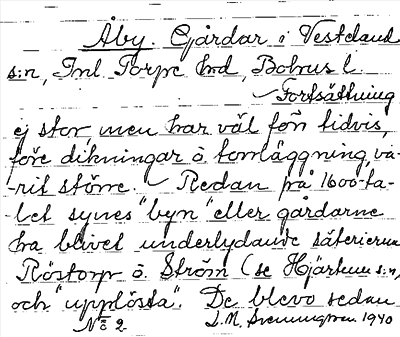 Åby Gårdar i Vestland
s:n, Inl Torpe hrd, Bohus l.
Fortsättning
ej stor men har väl förr tidvis,
före dikningar o. torrläggning, va-
-rit större. Redan på 1600-ta-
-let synes "byn" eller gårdarne
ha blivit underlydande säterierna
Röstorp o. Ström (se Hjärtum s:n)
och "upplösta". De blevo sedan
No 2 1940